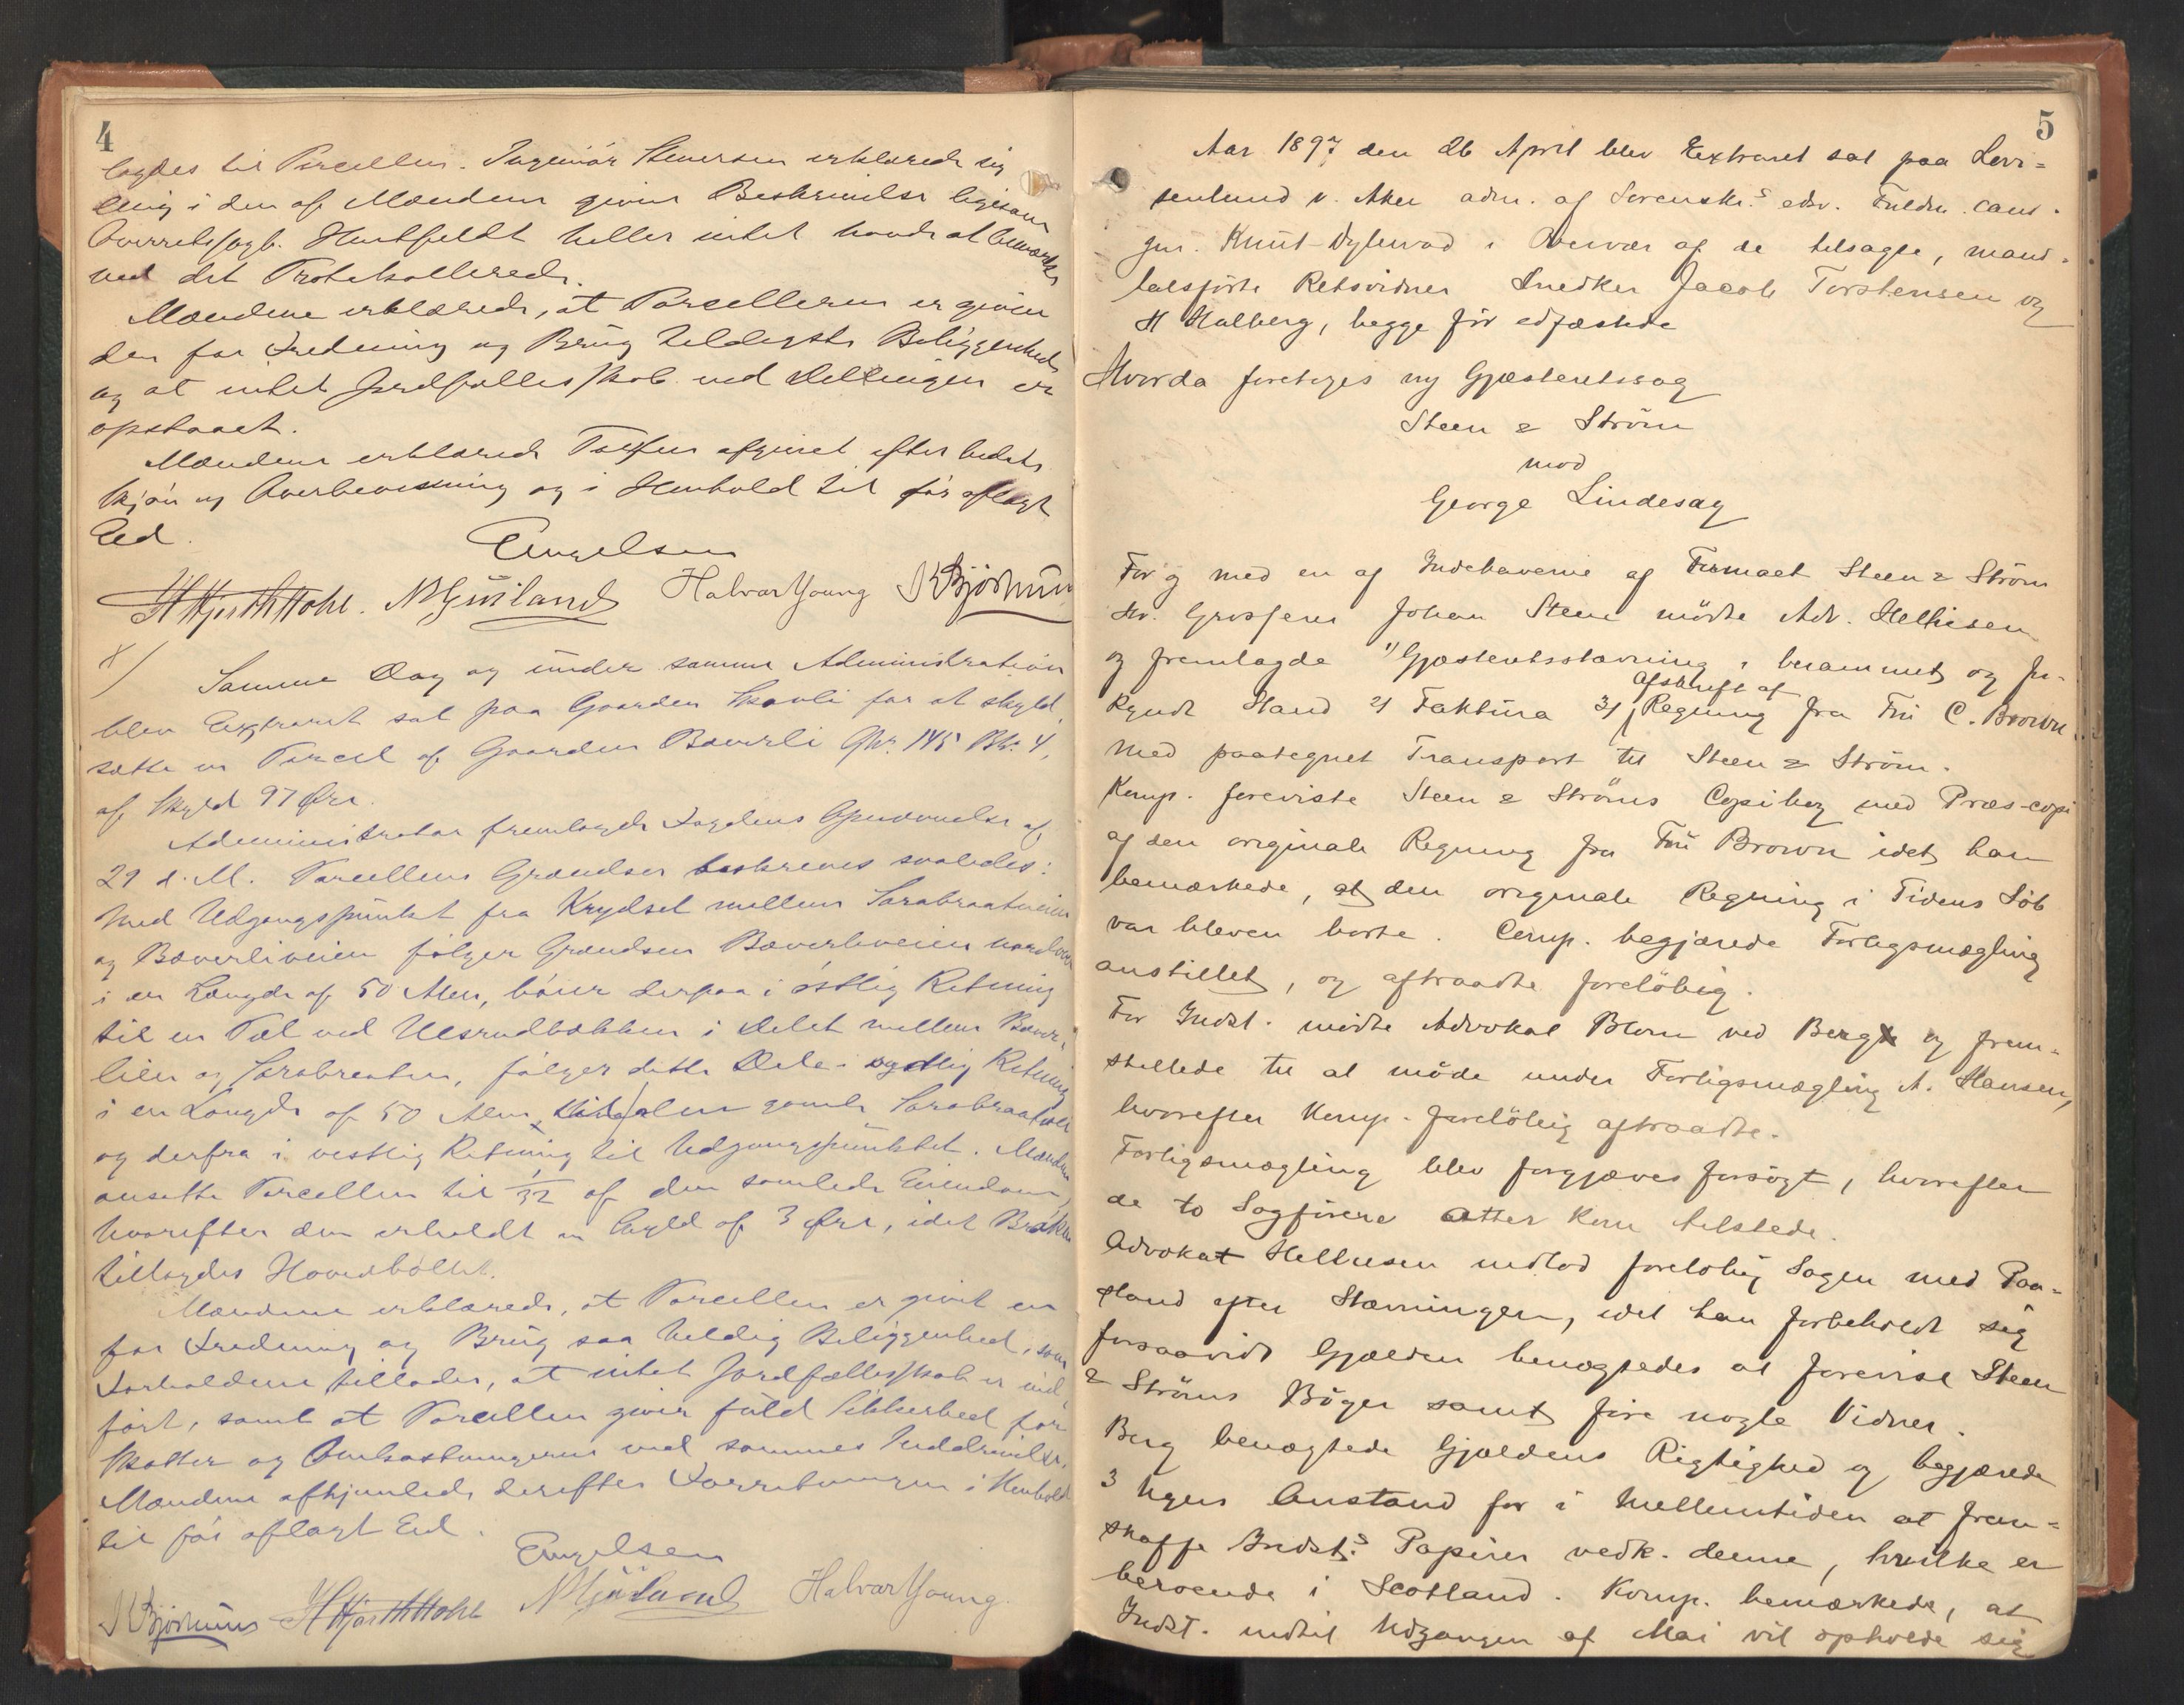 4
lagdes til Parcellen. Ingeniör Stenersen erklærede sig
enig i den af Mændene givne Beskrivelse ligesom
Overretssagf. Huitfeldt heller intet havde at bemærke
ved det Protokollerede.
Mændene erklærede, at Parcelleren er given
den for Fredning og Brug heldigste Beliggenhed
og at intet Jordfællesskab ved Delingen er
opstaaet.
Mændene erklærede Taxten afgivet efter bedste
Skjön og Overbevisning og i Henhold til för aflagt
Ed.
Engelsen
H Hjorth Hohl. N Gjuiland Halvar Young N Bjørhuus
x/ Samme Dag og under samme Administration
blev Extraret sat paa Gaarden Skovli for at skyld,
sætte en Parcel af Gaarden Bæverli Gn. 145 Bn. 4,
af Skyld 97 Øre.
Administrator fremlagde Fogdens Opnævnelse af
29 d. M. Parcellens Grændser beskreves saaledes:
Med Udgangspunkt fra Krydset mellem Sarabraatveien
og Bæverliveien fölger Grændsen Bæverliveien nordover
i en Længde af 50 Alen, böier derpaa i östlig Retning
til en Pæl ved Ulsrudbækken i Delet mellem Bæver-
lien og Sarabraaten, fölger dette Dele i sydlig Retning
i en Længde af 50 Alen, til den gamle Sarabraatvei
og derfra i vestlig Retning til Udgangspunktet. Mændene
ansatte Parcellen til 1/32 af den samlede Eiendom,
hvorefter den erholdt en Skyld af 3 Øre, idet Brøken
tillagdes Hovedbölet.
Mændene erklærede, at Parcellen er givet en
for Fredning og Brug saa heldig Beliggenhed, som
Forholdene tillader, at intet Jordfællesskab er ind-
fört, samt at Parcellen giver fuld Sikkerhed for
Skatter og Omkostningerne ved sammes Inddrivelse.
Mændene afhjemlede derefter Forretningen i Henhold
til för aflagt Ed.
Engelsen
N Bjørhuus H Hjorth Hohl N Gjuiland Halvar Young.
5
Aar 1897 den 26 April blev Extraret sat paa Lovi-
senlund v. Aker adm. af Sorenskr.s edsv. Fuldm. cand.
jur. Knut Dylervad i Overvær af de tilsagte, mand-
talsförte Retsvidner Snedker Jacob Torstensen og
H Halberg, begge för edfæstede
Hvorda foretoges ny Gjæsteretssag
Steen & Ström
mod
George Lindesay
For og med en af Indehaverne af Firmaet Steen & Ström
Hr. Grosserer Johan Steen mödte Adv. Hellisen
og fremlagde 1) Gjæsteretsstævning i berammet og for-
kyndt Stand 2) Faktura 3) afskrift af Regning fra Fru C. Brown
med paategnet Transport til Steen & Ström.
Komp. foreviste Steen & Ströms Copibog med Præs-copi
af den originale Regning fra Fru Brown idet han
bemærkede, at den originale Regning i Tidens Löb
var bleven borte. Comp. begjærede Forligsmægling
anstillet, og aftraadte forelöbig.
For Indst. mödte Advokat Blom ved Berg og frem-
stillede til at möde under Forligsmægling A. Hansen,
hvorefter Komp. forelöbig aftraadte.
Forligsmægling blev forgjæves forsögt, hvorefter
de to Sagförere atter kom tilstede.
Advokat Hellisen indlod forelöbig Sagen med Paa-
stand efter Stævningen, idet han forbeholdt sig
forsaavidt Gjælden benægtedes at forevise Steen
& Ströms Böger samt före nogle Vidner.
Berg benægtede Gjældens Rigtighed og begjærede
3 Ugers Anstand for i Mellemtiden at frem-
skaffe Indst.s Papirer vedk. denne, hvilke er
beroende i Scotland. Komp. bemærkede, at
Indst. indtil Udgangen af Mai vil opholde sig